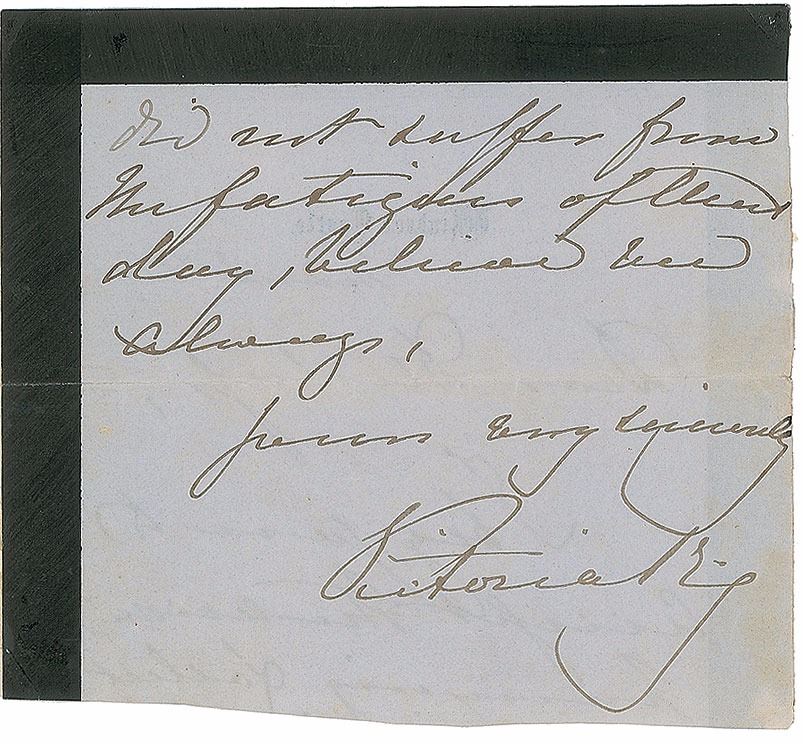 did not suffer from
the fatigues of that
day, believe me
always,
yours very sincerely
Victoria Rg